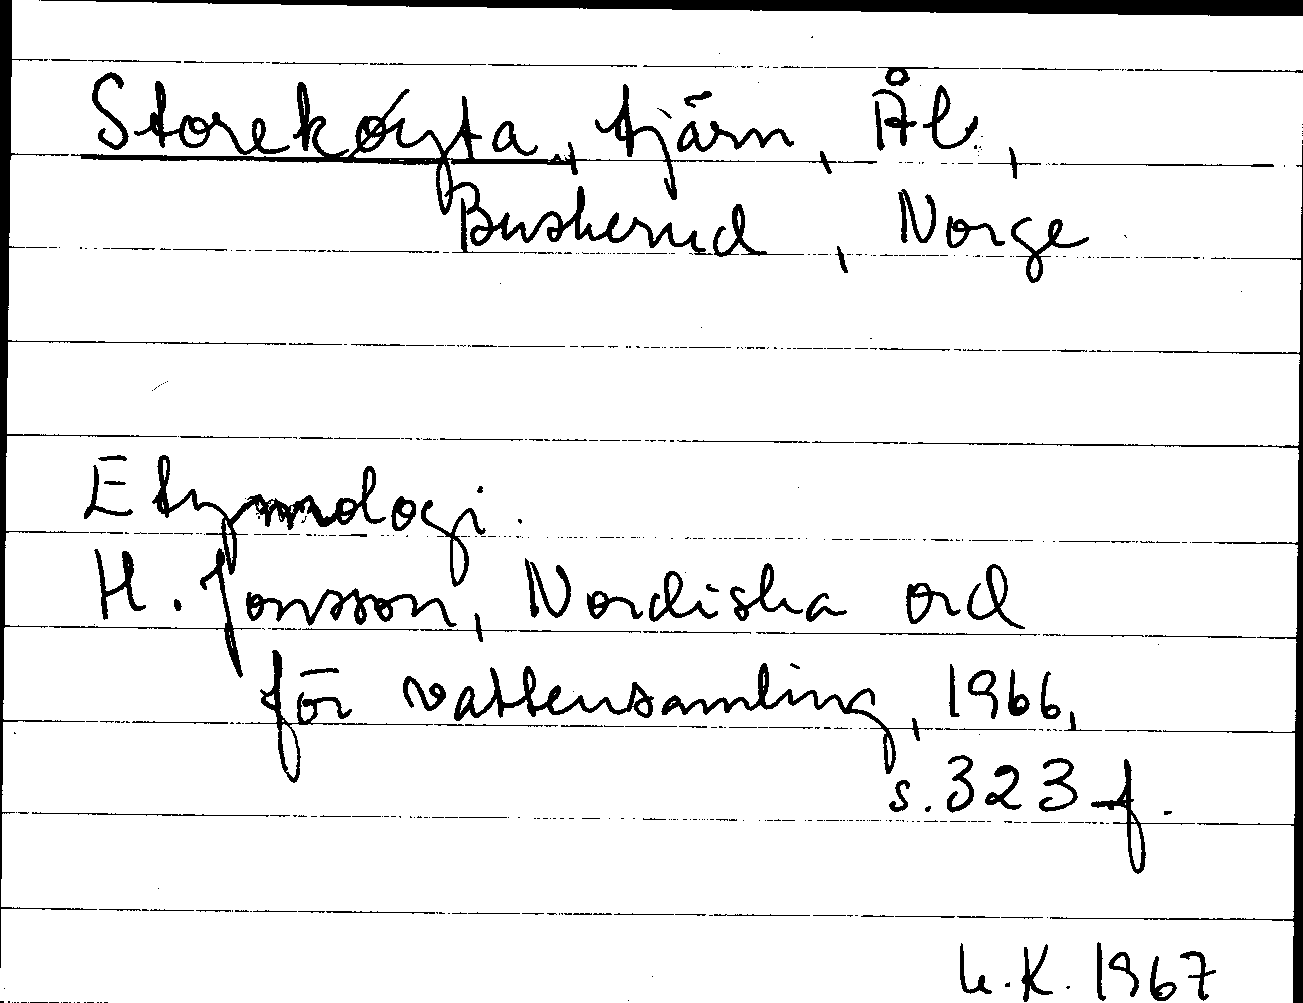 Storekøyta, tjärn, Ål,
Buskerud, Norge
Etymologi.
H. Jonsson, Nordiska ord
för vattensamling, 1966,
s. 323 f.
L.K. 1967